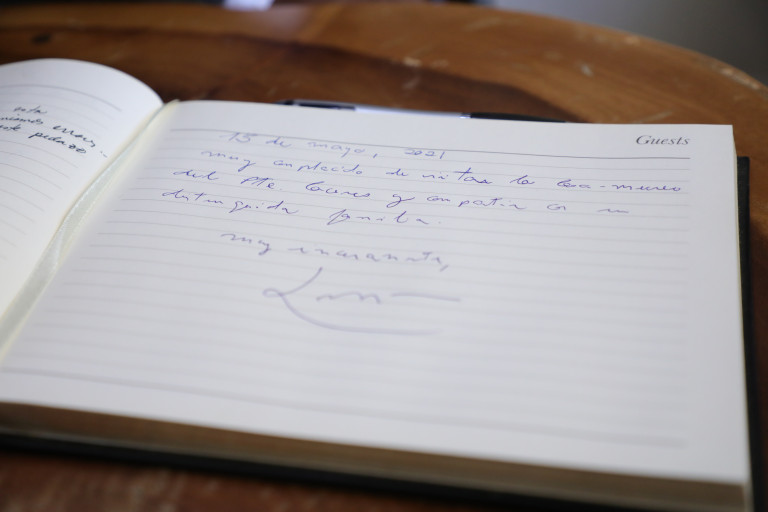 esta
errores
este pedazo
Guests
15 de mayo, 2021
muy complacido de visitar la Casa-museo
del Pte. Cáceres y compartir con su
distinguida familia.
muy